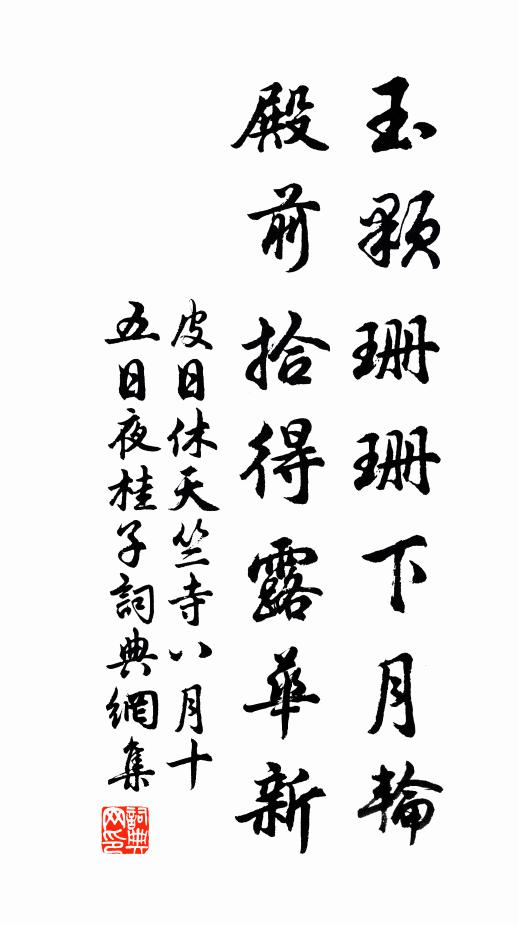 玉顆珊珊下月輪
殿前拾得露華新
皮日休天竺寺八月十
五日夜桂子詞典網集
詞典網印